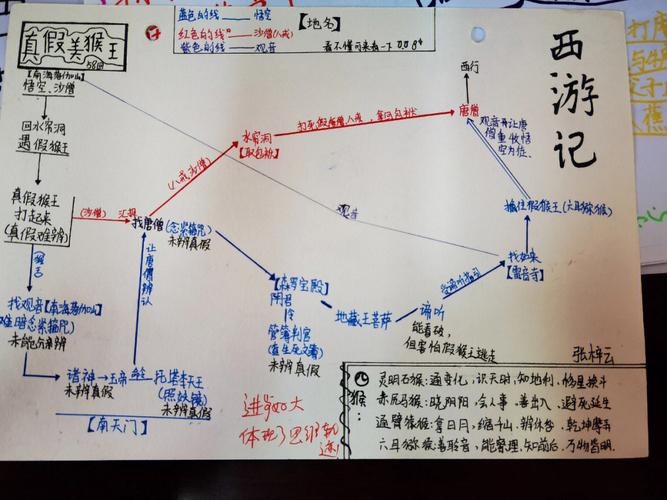 真假美猴王
58回
蓝色的线——悟空
红色的线——沙僧(八戒)
紫色的线——观音
【地名】
看不懂可来看一下
西游记
【南海落伽山】
悟空、沙僧
回水帘洞
遇假猴王
真假猴王
打起来
(真假难辨)
(沙僧)
汇报
找唐僧(念紧箍咒)
未辨真假
(八戒沙僧)
水帘洞
【取包袱】
唐僧
西行
观音
找如来
【雷音寺】
找观音【南海落伽山】
暗念紧箍咒
诸神→玉帝
托塔李天王
(照妖镜)
未辨真假
未辨真假
【南天门】
让唐僧辨认
【森罗宝殿】
阴君
令
管簿判官
未辨真假
地藏王菩萨
谛听
能看破,
但害怕假猴王逃走
张梓云
进步如大
体现了思维轨迹!
猴
灵明石猴:通变化,识天时,知地利,移星换斗
赤尻马猴:晓阴阳,会人事,善出入,避死延生
通臂猿猴:拿日月,缩千山,辨休咎,乾坤摩弄
六耳猕猴善聆音,能察理,知前后,万物皆明.